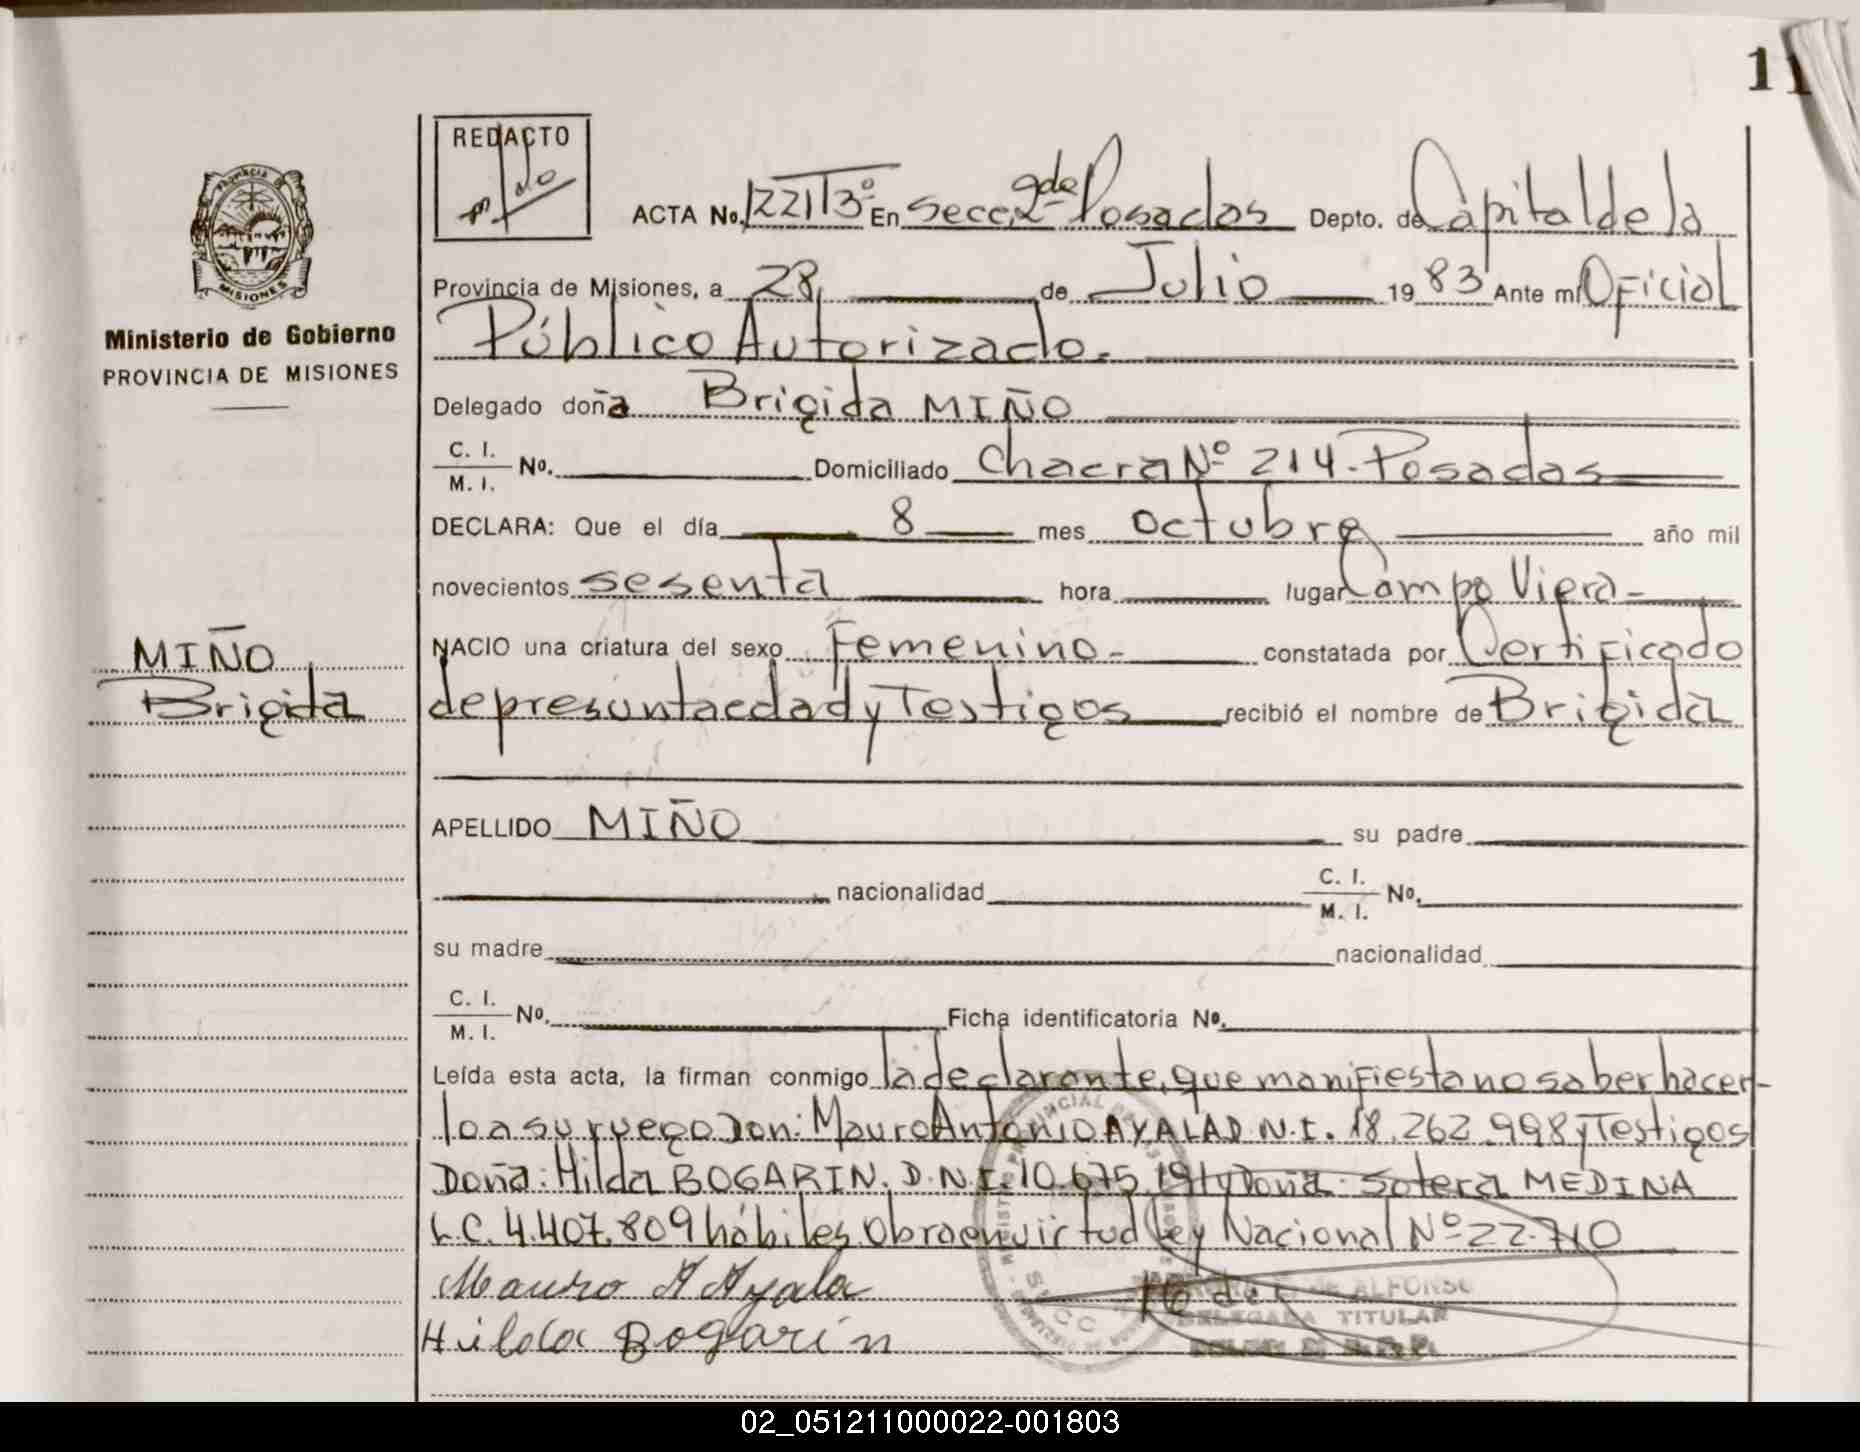 11
REDACTO
ACTA No. 221 T 3º En Secc. 2da Posadas Depto. de Capital de la
Provincia de Misiones, a 28 de Julio 1983 Ante mí Oficial
Público Autorizado.
Delegado doña Brigida MIÑO
C. I. / M. I. No. Domiciliado Chacra Nº 214 - Posadas
DECLARA: Que el día 8 mes octubre año mil
novecientos sesenta hora lugar Campo Viera -
NACIO una criatura del sexo Femenino - constatada por Certificado
de presunta edad y Testigos recibió el nombre de Brigida
APELLIDO MIÑO su padre
nacionalidad C. I. / M. I. No.
su madre nacionalidad
C. I. / M. I. No. Ficha identificatoria No.
Leída esta acta, la firman conmigo la declarante, que manifiesta no saber hacer-
lo a su ruego Don: Mauro Antonio AYALA D.N.I. 18.262.998 y Testigos
Doña: Hilda BOGARIN. D.N.I. 10.675.191 y Doña: Sotera MEDINA
L.C. 4.407.809 hábiles. Obra en virtud Ley Nacional Nº 22.710
Mauro A Ayala
Hilda Bogarin
de ALFONSO
DELEGADA TITULAR
PROVINCIA DE MISIONES
Ministerio de Gobierno
PROVINCIA DE MISIONES
MIÑO
Brigida
02_051211000022-001803